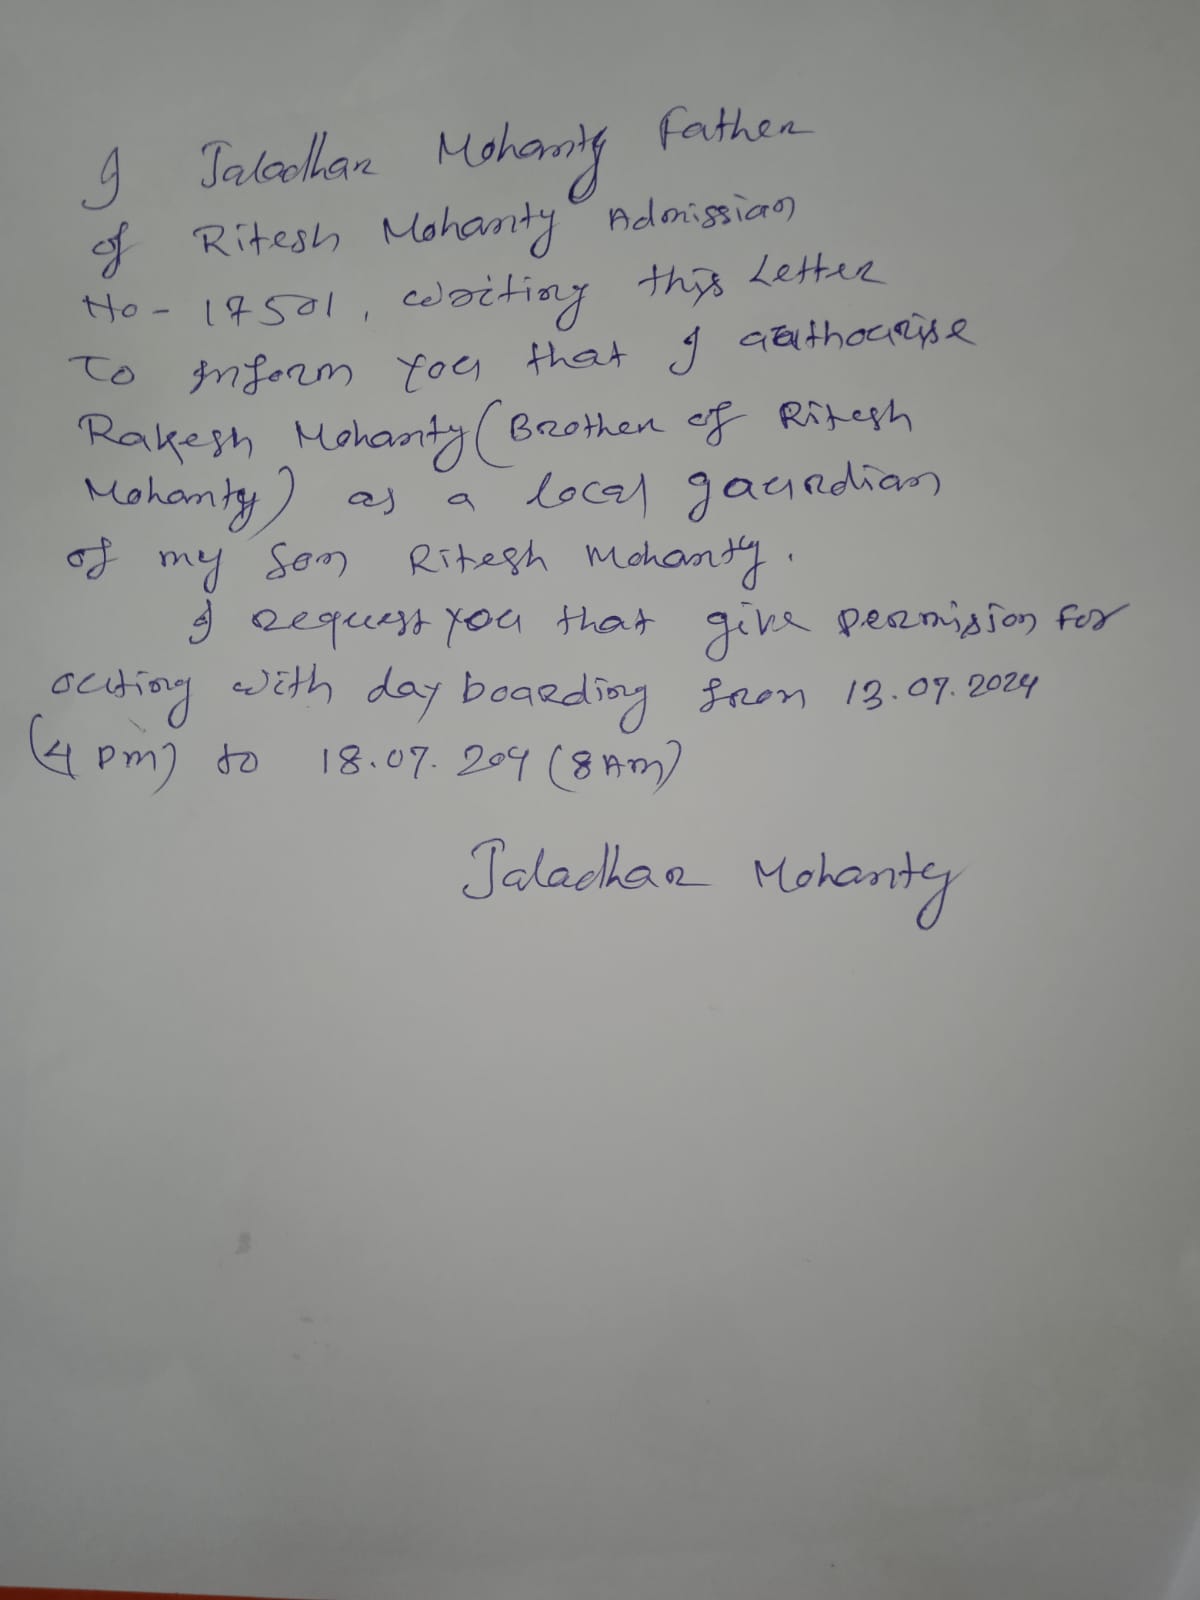 I Jaladhar Mohanty Father
of Ritesh Mohanty Admission
No - 17501, writing this Letter
To inform you that I authourise
Rakesh Mohanty (Brother of Ritesh
Mohanty) as a local gaurdian
of my son Ritesh Mohanty.
I request you that give permission for
outing with day boarding from 13.07.2024
(4 pm) to 18.07.204 (8 Am)
Jaladhar Mohanty